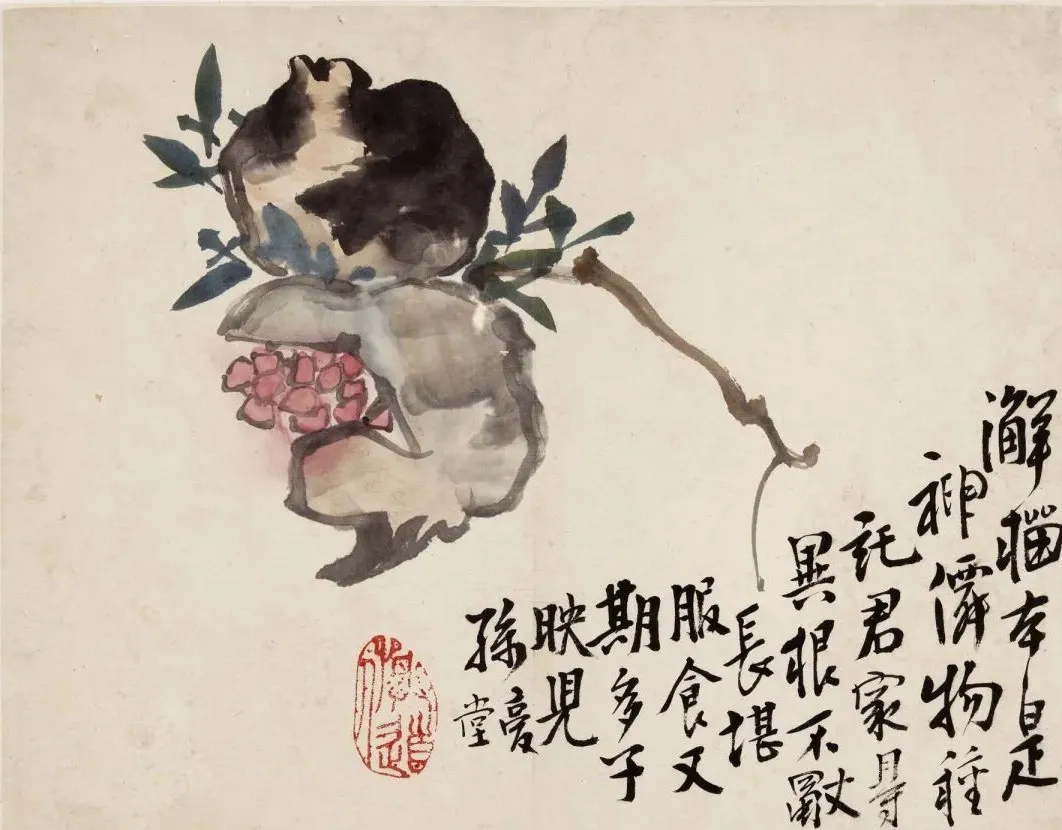 澥榴本是
神僊物種
託君家㝵
異根不
長堪
服食又
期多子
映兒
孫
堂